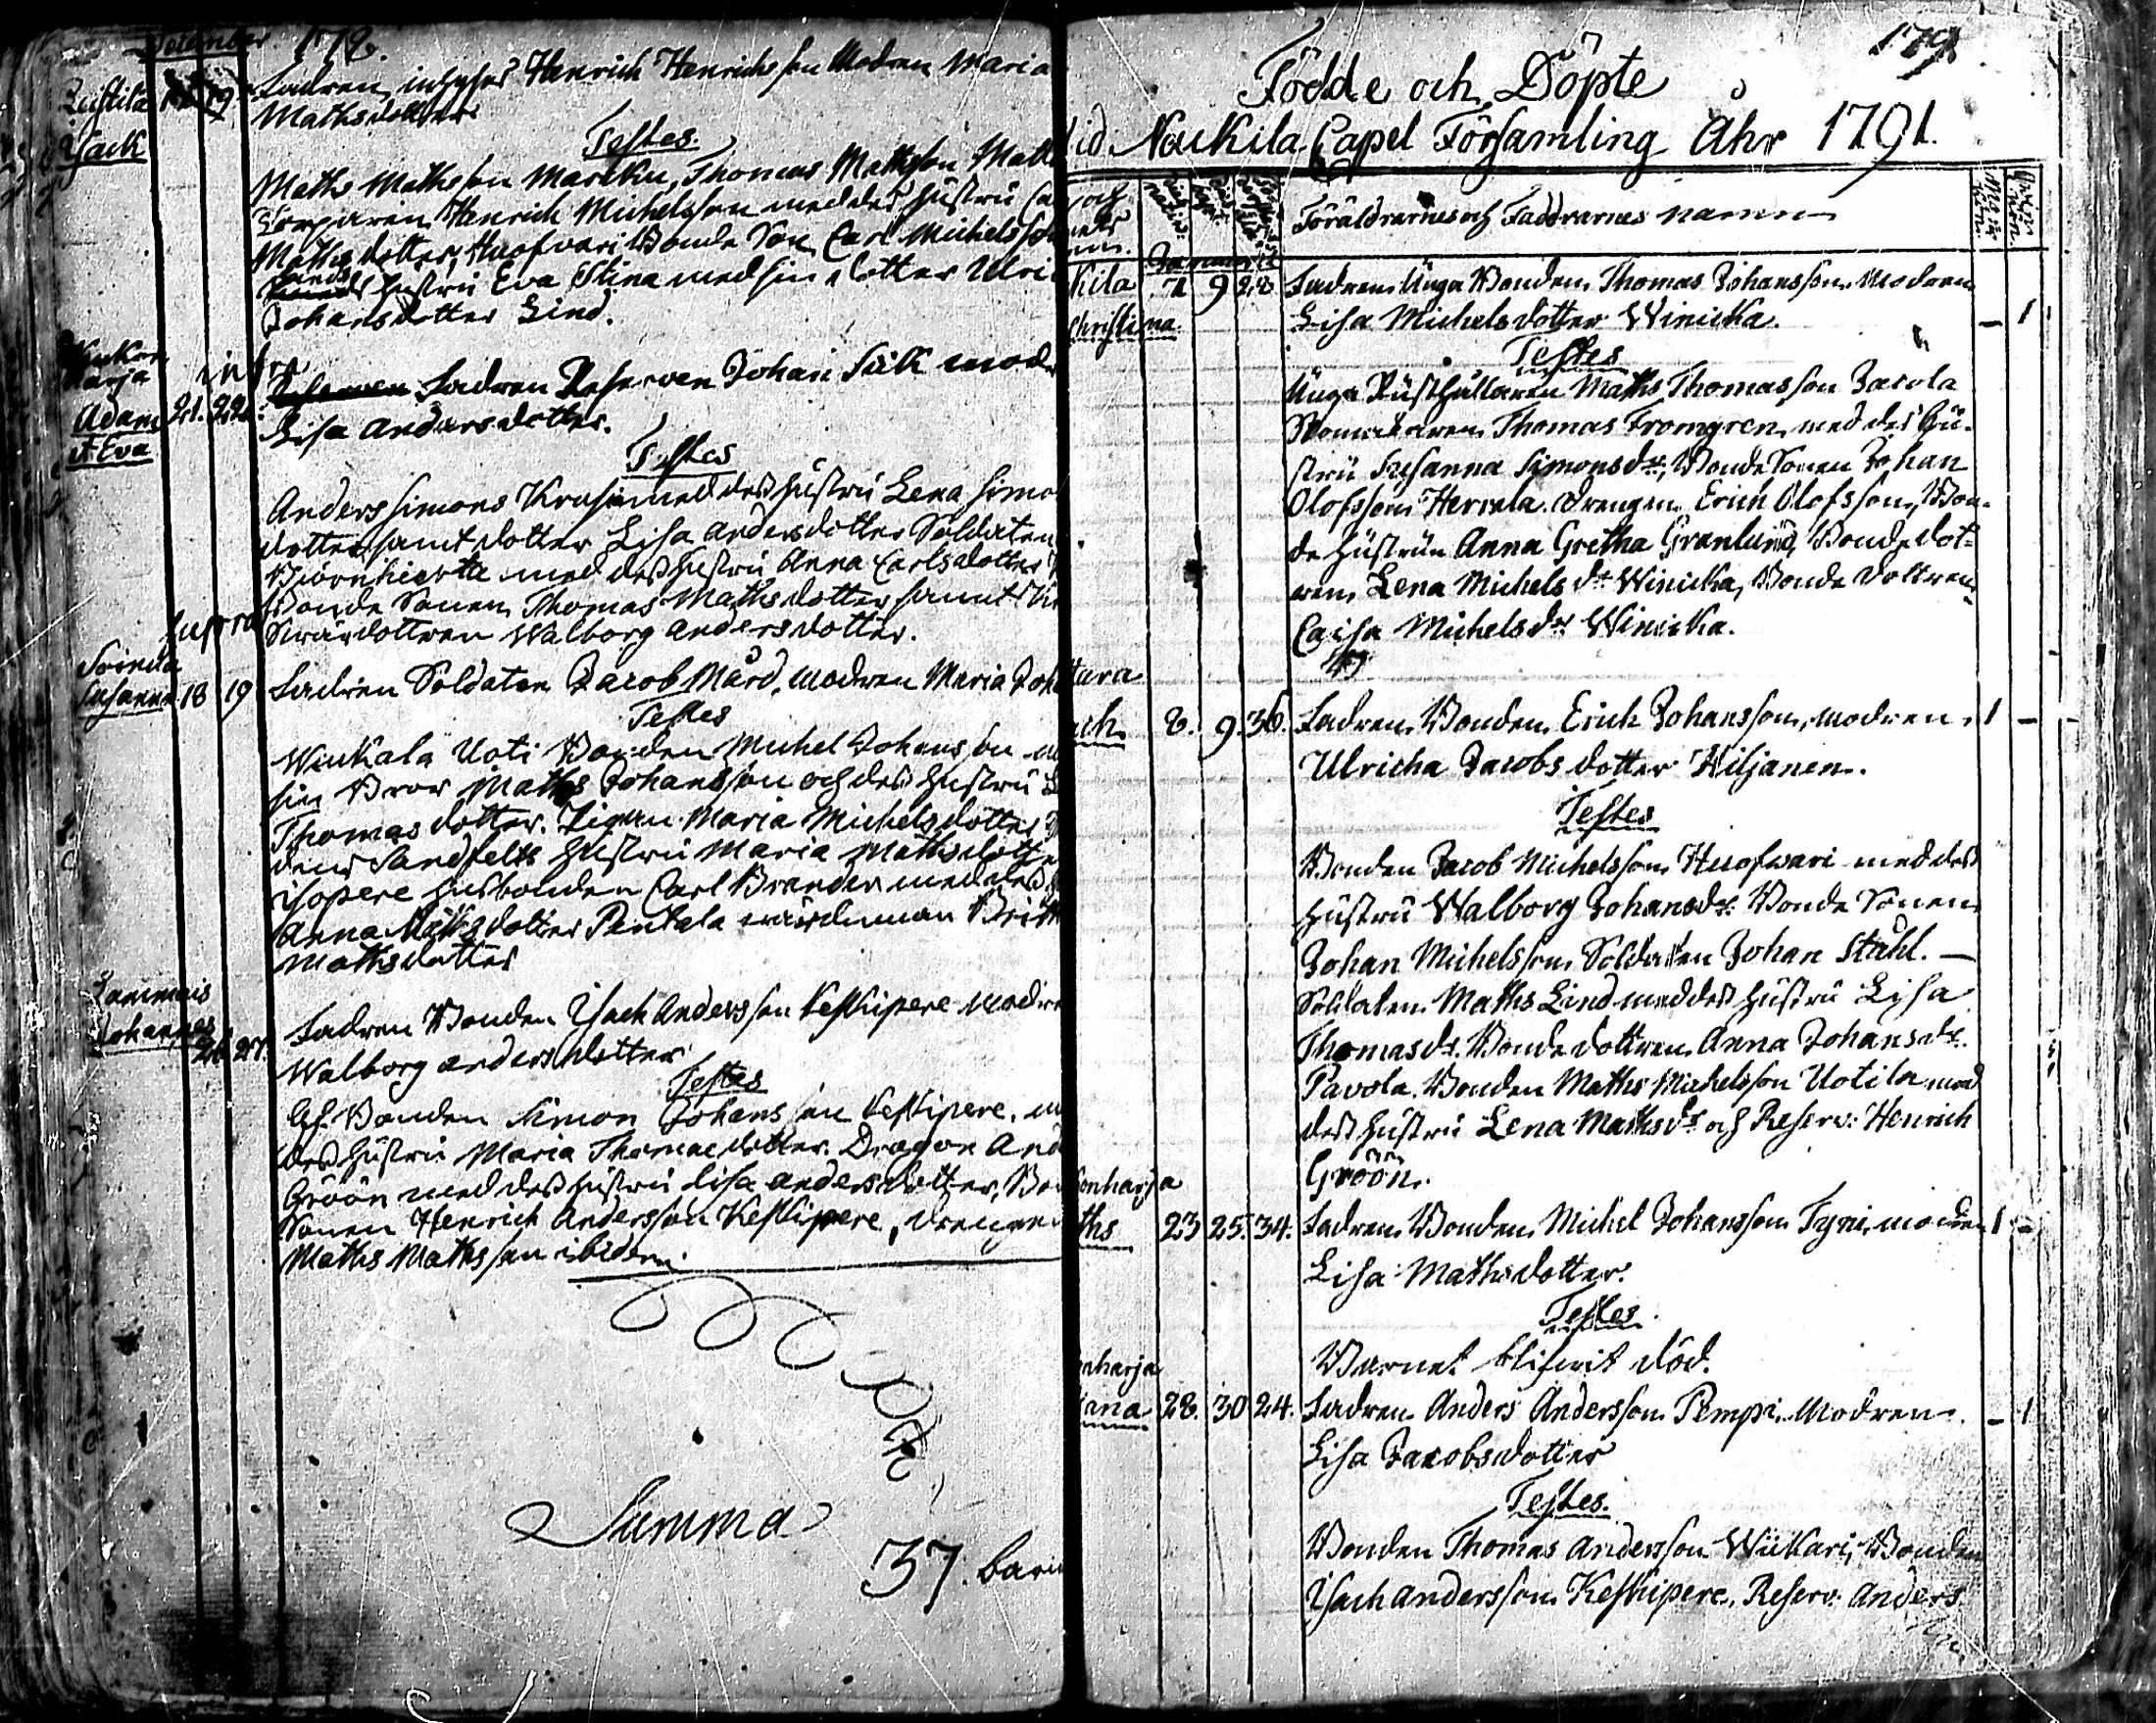 December 179
Fadren inhyses Henrich Henrichsson Modren Maria
Mathsdotter
Isack
Testes.
Maths Mathsson Marcku, Thomas Mathsson, Math
Torparen Henrich Michelsson med des hustru
Mathsdotter, Huofvari Bonde Son Carl Michelsson
hustru Eva Stina med sin dotter Ulri
Johansdotter Lind.
Adam 21. 22. Fadren Reserven Johan Silk mod
et Eva Lisa Andersdotter.
Testes
Anders Simons Krusi med des hustru Lena Simo
dotter samt dotter Lisa Andersdotter Soldaten
Biörnhierta med des hustru Anna Carlsdotter
Bonde Sonen Thomas Mathsdotter samt
Swärdottren Walborg Andersdotter.
Soinila
Susanna 18 19 Fadren Soldaten Jacob Mård, modren Maria Joh
Testes
Uoti Bonden Michel Johansson
sin Bror Maths Johansson och des hustru
Thomasdotter. Pigan Maria Michelsdotter
Sandfelts hustru Maria Mathsdotte
husbonden Carl Brander med des
Anna Mathsdotter Pentala
Mathsdotter
Johannes 26 27. Fadren Bonden Isach Andersson Keskipere modre
Walborg Andersdotter
Testes
Gf. Bonden Simon Johansson Keskipere, m
des hustru Maria Thomaedotter. Dragon And
Gröön med des hustru Lisa Andersdotter, Bo
Sonen Henrich Andersson Keskipere, drengen
Maths Mathsson ibidem.
Summa
37. barn
179
Födde och Döpte
id Nackila Capel Församling Åhr 1791.
Föräldrarnes och Faddrarnes namn
Januarii
kila 7 9 22 Fadren Unga Bonden Thomas Johansson, Modren
Christina Lisa Michelsdotter Winicka. — 1
Testes
Unga Rusthållaren Maths Thomasson Jacola
Skomakaren Thomas Fromgren med des hu-
stru Susanna Simonsdr, Bonde Sonen Johan
Olofsson Herrala. drengen Erich Olofsson, Bon-
de hustrun Anna Gretha Granlund, Bonde dot-
ren Lena Michelsdr Winicka, Bonde dottren
Caisa Michelsdr Winicka.
ach 8. 9. 36. Fadren Bonden Erich Johansson, modren 1 —
Ulricha Jacobsdotter Hiljanen.
Testes
Bonden Jacob Michelsson Huofwari med des
hustru Walborg Johansdr. Bonde Sonen
Johan Michelsson Soldaten Johan Ståhl. —
Soldaten Maths Lind med des hustru Lisa
Thomasdr. Bonde dottren Anna Johansdr.
Pavola. Bonden Maths Michelsson Uotila med
des hustru Lena Mathsdr och Reserv: Henrich
Gröön.
onharja
ths 23 25. 34. Fadren Bonden Michel Johansson Tyni, modren 1 -
Lisa Mathsdotter.
Testes
Barnet blifwit död.
nharja
ana 28. 30 24. Fadren Anders Andersson Pempi. Modren - 1
Lisa Jacobsdotter
Testes.
Bonden Thomas Andersson Wiikari, Bonden
Isach Andersson Keskipere, Reserv: Anders